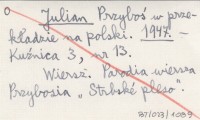 O Julian Przyboś w prze-
kładzie na polski. 1947.-
Kuźnica 3, nr 13.
Wiersz. Parodia wiersza
Przybosia „Strbské pleso".
787/023/1089